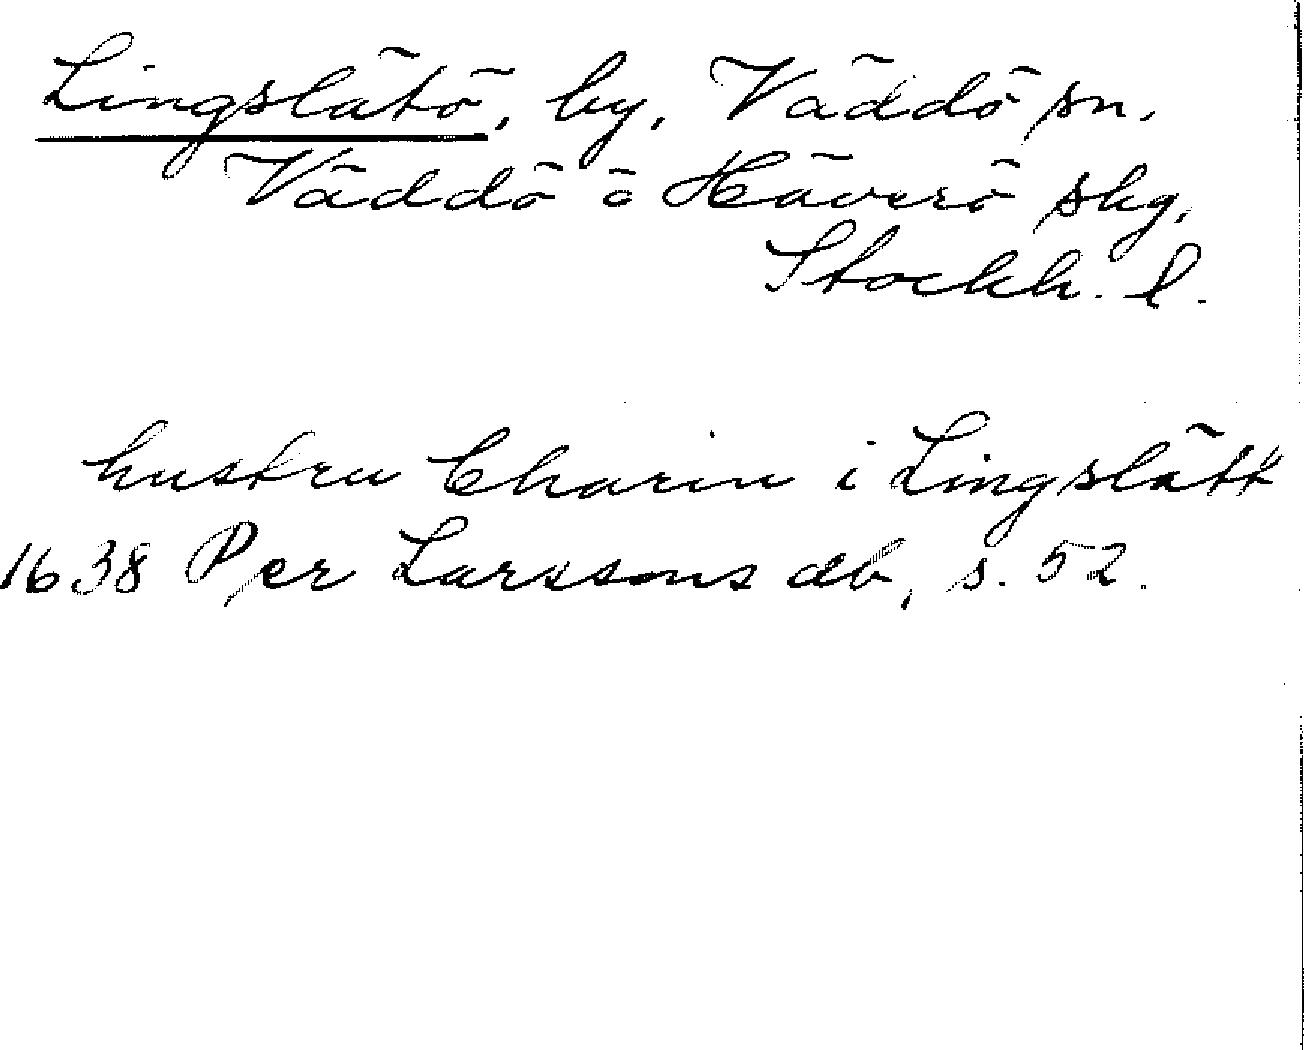 Lingslätö, by, Väddö sn.
Väddö o Häverö skg,
Stockh. l.
hustru Charin i Lingslätt
1638 Per Larssons db, s. 52.